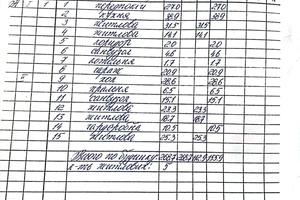 24 I 1 1 270 270
2 кухня 38,9 38,9
3 житлова 31.5 31.5
4 житлова 14.1 14.1
5 коридор 2.0 2.0
6 санвузол 4.6 4.6
7 1.7 1.7
8 20,9 20,9
II 9 хол 28.6 28.6
10 6.5 6.5
11 санвузол 15.1 15.1
12 житлова 23.3 23.3
13 житлова 18.7 18.7
14 гардеробна 10.5 10.5
15 житлова 25.3 25.3
Всього по будинку:
к-ть житлових: 5